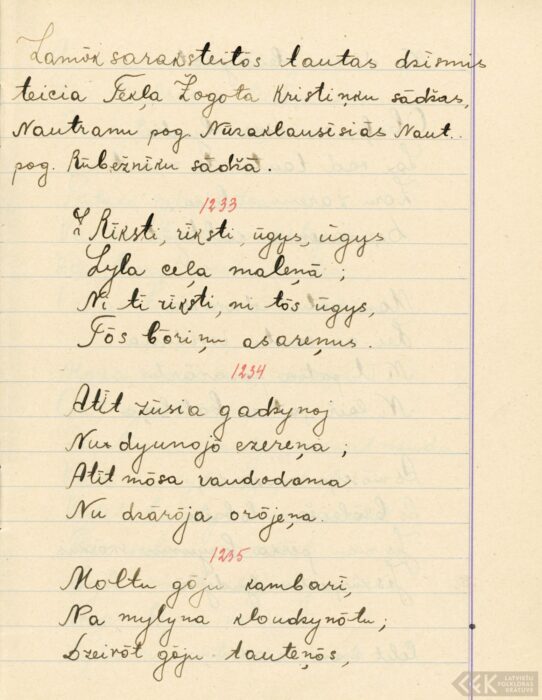 Zamōk saraksteitōs tautas dzīsmis
teicia Tekļa Zogota Kristiņku sādžas,
Nautranu pog. Nūraklausīsiās Naut.
pog. Rūbeznīku sādžā.
1233
Rīksti, rīksti, ūgys, ūgys
Lyla ceļa maleņā;
Ni tī rīksti, ni tōs ūgys,
Tōs bōriņu asareņus.
1234
Atīt zūsia gadkynoj
Nu dyunojō ezereņa;
Atīt mōsa raudodama
Nu dzārōja orōjeņa.
1235
Moltu gōju kambarī,
Na mylyna kloudkynōtu;
Dzeivōt gōju tauteņōs,
LATVIEŠU
FOLKLORAS
KRĀTUVE